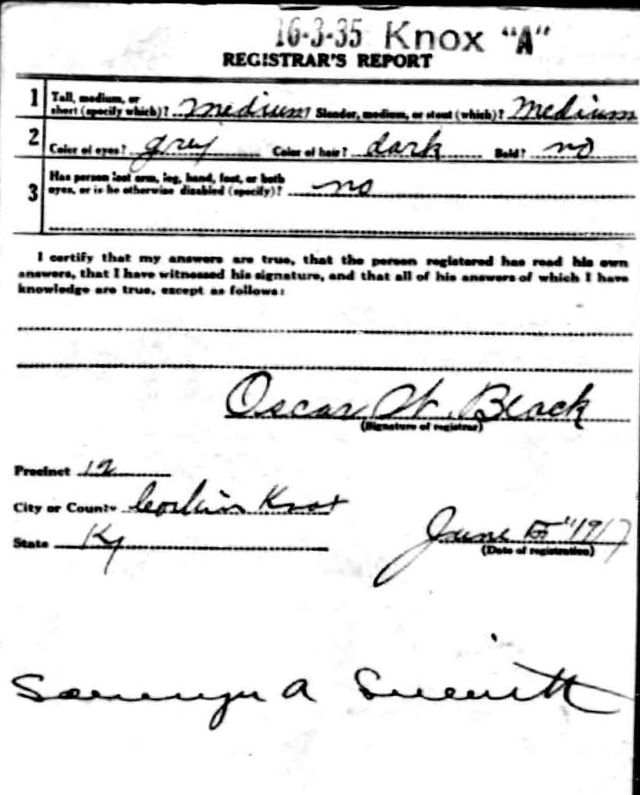 16-3-35 Knox "A"
REGISTRAR'S REPORT
1 Tall, medium, or
short (specify which)? medium Slender, medium, or stout (which)? Medium
2 Color of eyes? grey Color of hair? dark Bald? no
3 Has person lost arm, leg, hand, foot, or both
eyes, or is he otherwise disabled (specify)? no
I certify that my answers are true, that the person registered has read his own
answers, that I have witnessed his signature, and that all of his answers of which I have
knowledge are true, except as follows:
Oscar W. Black
(Signature of registrar)
Precinct 12
City or County Corbin Knox
State Ky
June 5" 1917
(Date of registration)
A